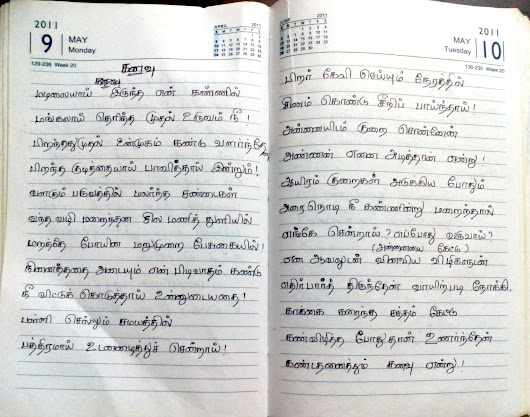 2011
9 MAY
Monday
APRIL 2011
129-236 Week 20
கனவு
மழலையாய் இருந்த என் கண்ணில்
மங்கலாய் தெரிந்த முதல் உருவம் நீ !
பிறந்தது முதல் உன்முகம் கண்டு வளர்ந்தேன்
பிறந்த குழந்தையாய் பாவித்தாய் இன்றும் !
வளரும் பருவத்தில் மலர்ந்த சண்டைகள்
வந்த வழி மறைந்தன சில மணித் துளியில்
மறந்தே போயின மறுமுறை பேசுகையில் !
நினைத்ததை அடையும் என் பிடிவாதம் கண்டு
நீ விட்டுக் கொடுத்தாய் உன்னுடையதை !
பள்ளி செல்லும் சமயத்தில்
பத்திரமாய் உடனழைத்துச் சென்றாய் !
2011
MAY 10
Tuesday
130-235 Week 20
பிறர் கேலி செய்யும் நேரத்தில்
சினம் கொண்டு சீறிப் பாய்ந்தாய் !
அன்னையிடம் குறை சொன்னேன்
அண்ணன் எனை அடித்தான் என்று !
ஆயிரம் குறைகள் அடுக்கிய போதும்
அரை நொடி நீ கண்ணின்று மறைந்தால்
எங்கே சென்றாய் ? எப்போது வருவாய் ?
(அன்னையை கேட்டு)
என ஆவலுடன் வினவிய விழிகளுடன்
எதிர்பார்த் திருந்தேன் வாயிற்படி நோக்கி
காக்கை கரைந்த சத்தம் கேட்டு
கண்விழித்த போது தான் உணர்ந்தேன்
கண்டதனைத்தும் கனவு என்று !